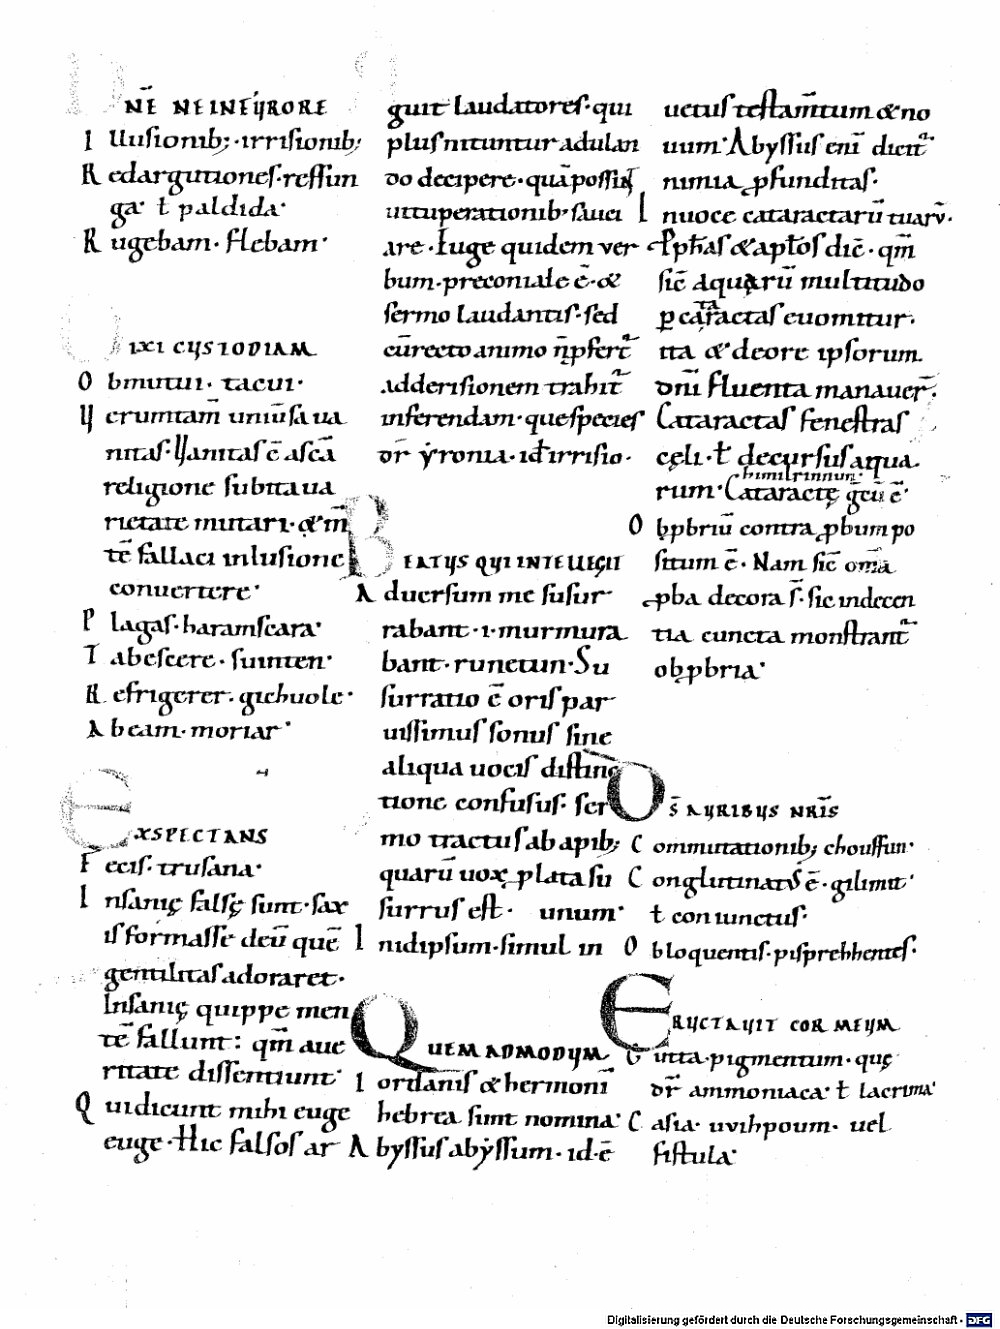 DNE NE IN FURORE
I llusionib;· irrisionib;
R edargutiones· reffun
ga· ł paldida·
R ugebam· flebam·
DIXI CUSTODIAM
O bmutui· tacui·
U erumtam̄ uniūsa ua
nitas· Uanitas ē a sc̄a
religione subita ua
rietate mutari· & m̄
tē fallaci inlusione
conuertere·
P lagas· haramscara·
T abescere· suinten·
R efrigerer· gichuole·
A beam· moriar·
EXSPECTANS
F ecis· trusana·
I nsanię falsę sunt· sax
is formasse deū quē
gentilitas adoraret·
Insanię quippe men
tē fallunt: qm̄ a ue
ritate dissentiunt·
Q ui dicunt mihi euge
euge· Hic falsos ar
guit laudatores· qui
plus nituntur adulan
do decipere· quā possint
uituperationib; sauci
are· Iuge quidem ver
bum· preconiale ē· &
sermo laudantis· sed
cū recto animo n̄ pfert̄
ad derisionem trahit̄
inferendam· que species
dr̄ yronia· id irrisio·
BEATUS QUI INTELLEGIT
A duersum me susur
rabant· i· murmura
bant· runetun· Su
surratio ē oris par
uissimus sonus sine
aliqua uocis distinc
tione confusus· ser
mo tractus ab apib;
quarū uox plata su
surrus est· unum·
I n id ipsum· simul in
QUEM ADMODUM
I ordanis & hermonī
hebrea sunt nomina·
A byssus abyssum· id· ē
uetus testam̄tum & no
uum· Abyssus enī dicit̄
nimia pfunditas·
I n uoce cataractarū tuarū·
pph̄as & apłos dic̄· qm̄
sic̄ aquarū multitudo
p cataractas euomitur·
ita & de ore ipsorum
dnī fluenta manauer̄·
Cataractas fenestras
cęli· ł decursus aqua
rum· Cataractę gen̄ ē·
himilrinnun·
O bpbriū contra pbum po
situm ē· Nam sic̄ om̄a
pba decora s̄· sic indecen
tia cuncta monstrant̄
obpbria·
DS̄ AURIBUS NRĪS
C ommutationib; chouffun·
C onglutinatus ē· gilimit·
ł coniunctus·
O bloquentis· pisprehhentes·
ERUCTAUIT COR MEUM
G utta· pigmentum· quę
dr̄ ammoniaca· ł lacrima·
C asia· uvihpoum· uel
fistula·
Digitalisierung gefördert durch die Deutsche Forschungsgemeinschaft · DFG